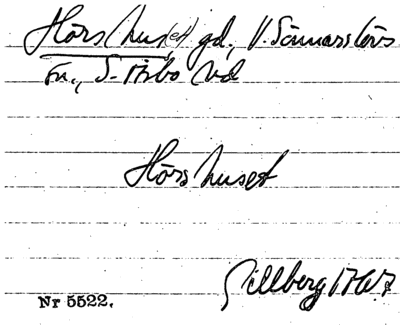 Hörs huset gd, V. Sönnarslövs
sn., S. Åsbo hd
Hörs huset
Gillberg 1767
Nr 5522.